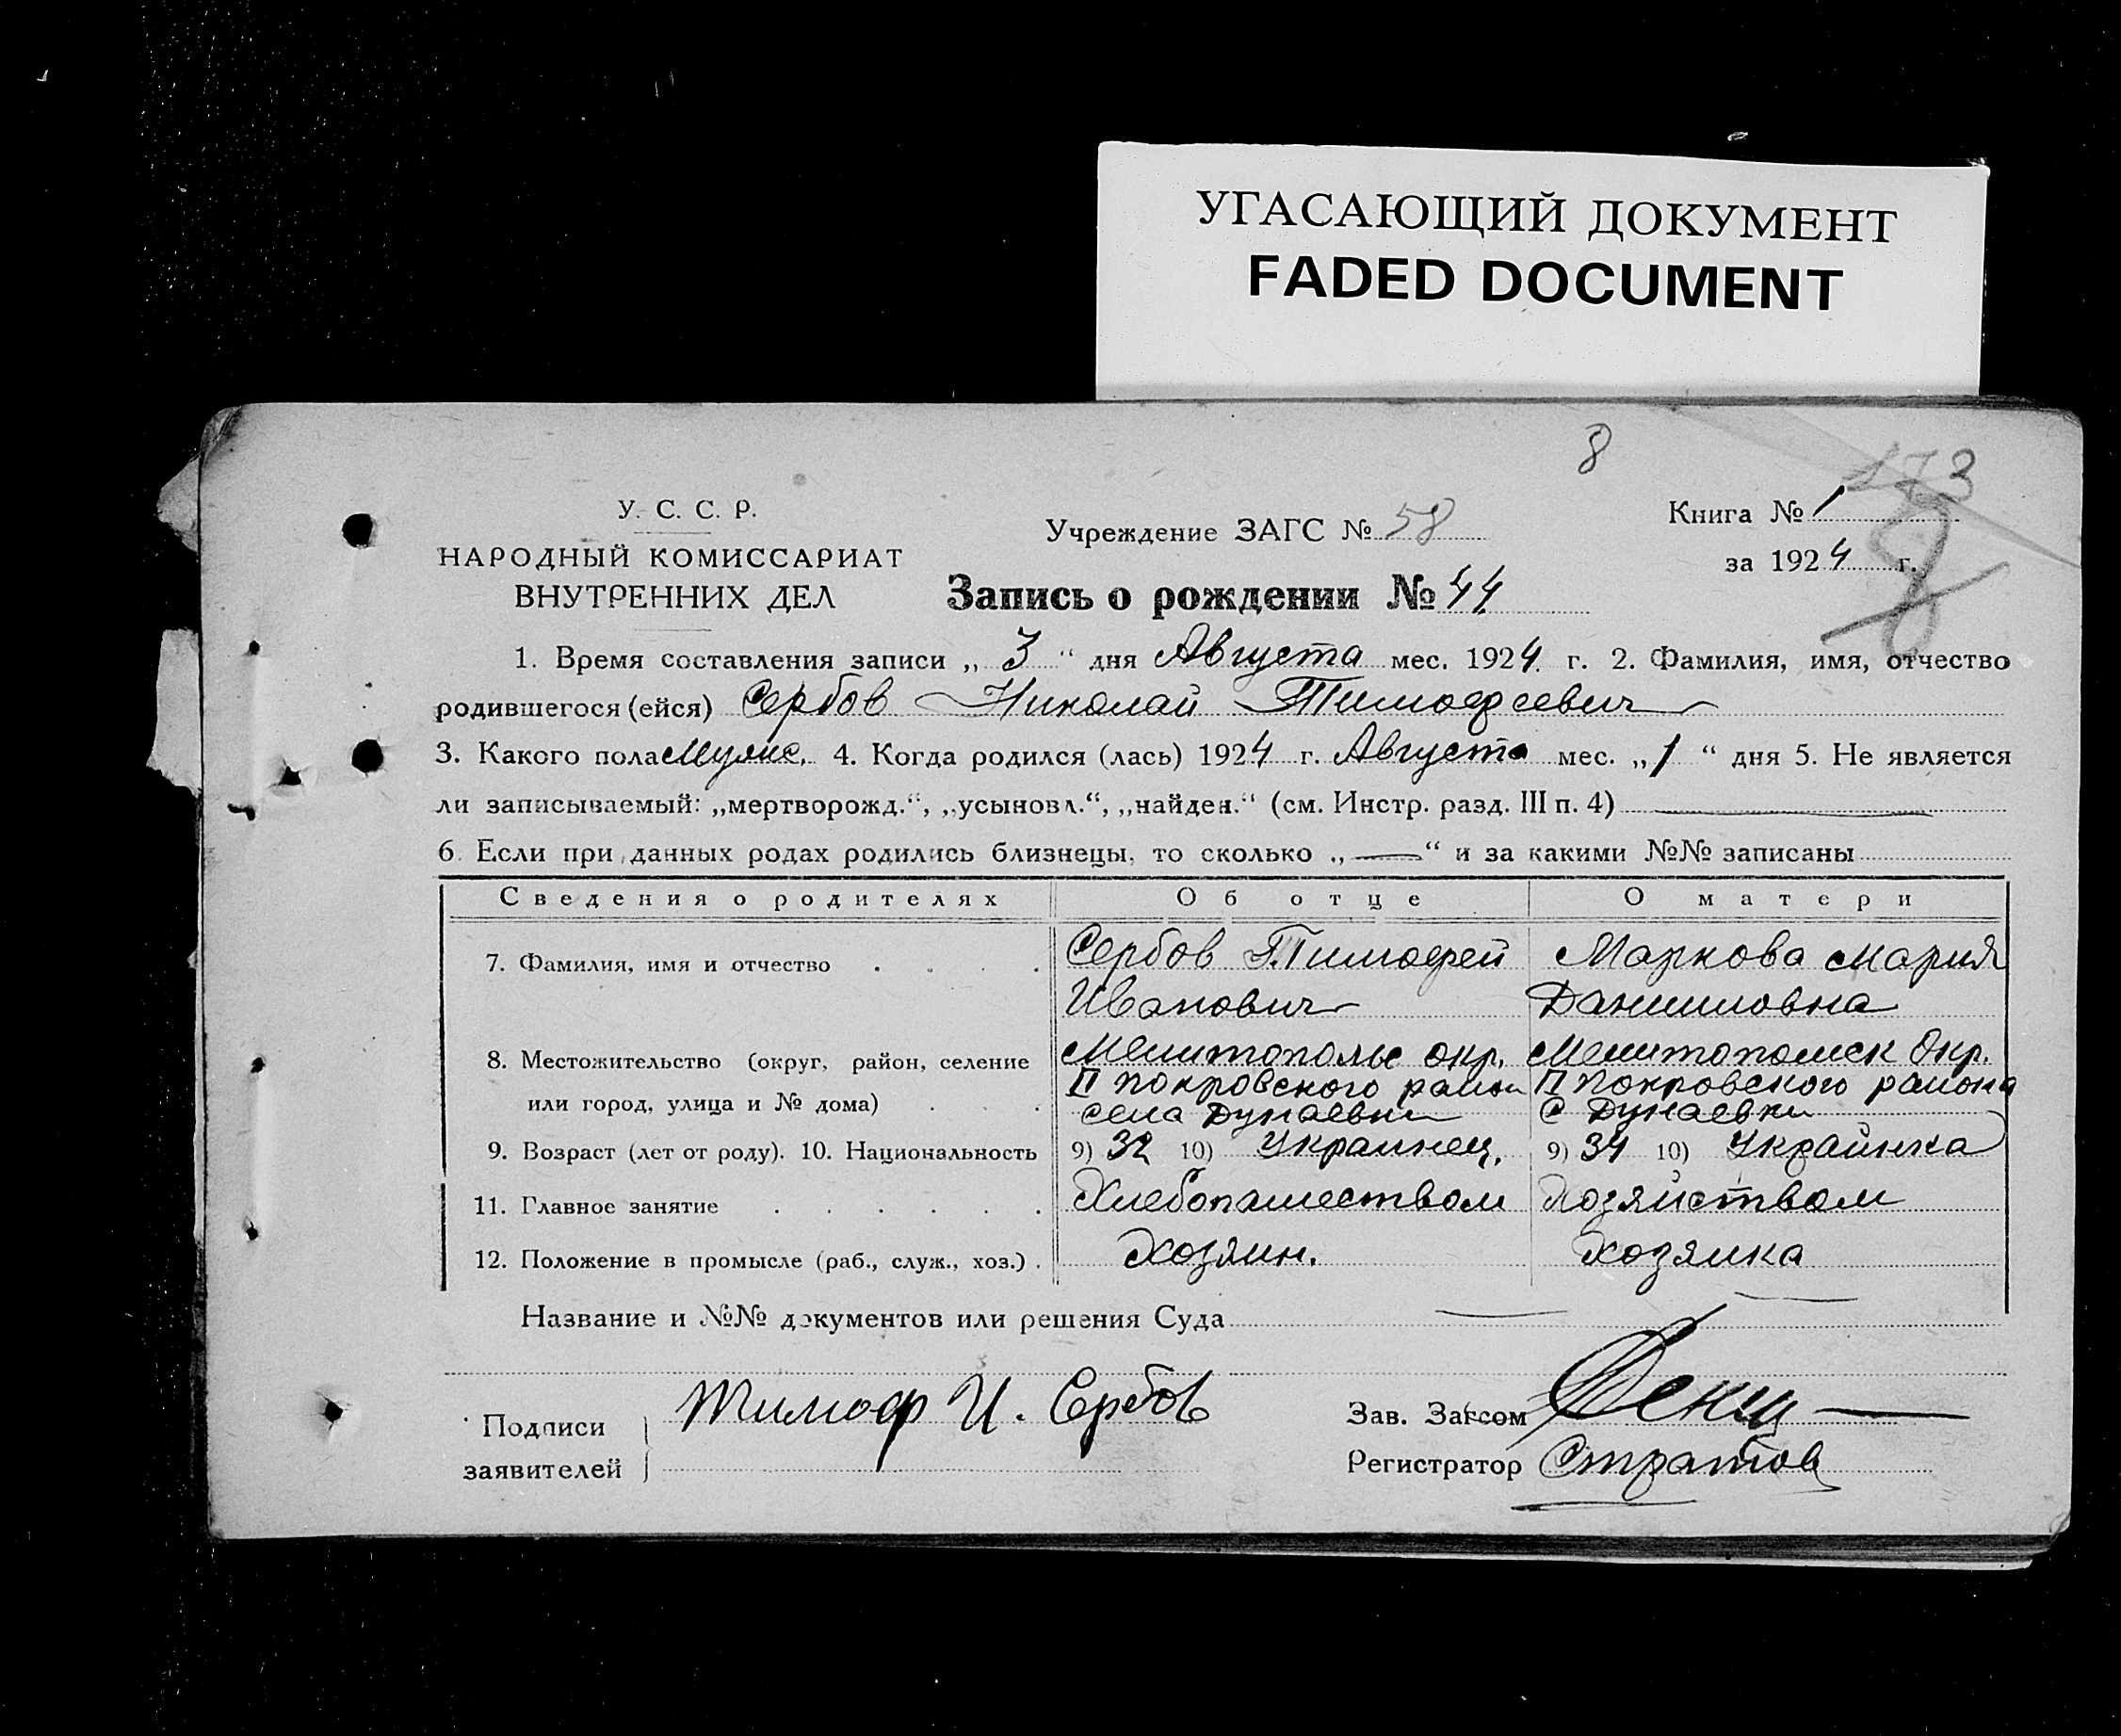 УГАСАЮЩИЙ ДОКУМЕНТ
FADED DOCUMENT
8
173
У. С. С. Р.
НАРОДНЫЙ КОМИССАРИАТ
ВНУТРЕННИХ ДЕЛ
Учреждение ЗАГС № 58
Книга № 1
за 1924 г.
8
Запись о рождении № 44
1. Время составления записи „ 3 “ дня Августа мес. 1924 г. 2. Фамилия, имя, отчество
родившегося (ейся) Сербов Николай Тимофеевич
3. Какого пола Мужс. 4. Когда родился (лась) 1924 г. Августа мес. „ 1 “ дня 5. Не является
ли записываемый: „мертворожд.“, „усыновл.“, „найден.“ (см. Инстр. разд. III п. 4)
6. Если при данных родах родились близнецы, то сколько „ — “ и за какими №№ записаны
Сведения о родителях Об отце О матери
7. Фамилия, имя и отчество . . . . Сербов Тимофей Маркова Мария
Иванович Даниловна
8. Местожительство (округ, район, селение Мелитопольс окр. Мелитопольск Окр.
или город, улица и № дома) . . . II Покровского район II Покровского района
села Дунаевки с Дунаевки
9. Возраст (лет от роду). 10. Национальность 9) 32 10) Украинец. 9) 34 10) Украинка
11. Главное занятие . . . . . . Хлебопашеством Хозяйством
12. Положение в промысле (раб., служ., хоз.) . Хозяин. Хозяйка
Название и №№ документов или решения Суда
Подписи
заявителей
Тимоф И. Сербов
Зав. Загсом
Регистратор Стратов